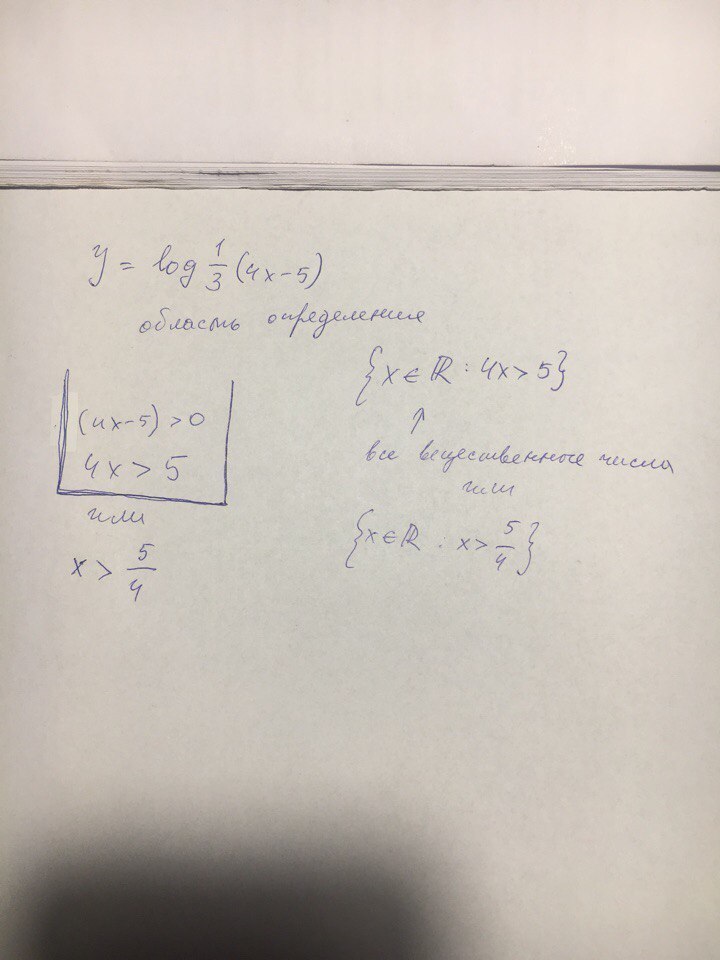 y = log 1/3 (4x-5)
область определения
(4x-5) > 0
4x > 5
или
x > 5/4
{x ∈ ℝ : 4x > 5}
↑
все вещественные числа
или
{x ∈ ℝ : x > 5/4}